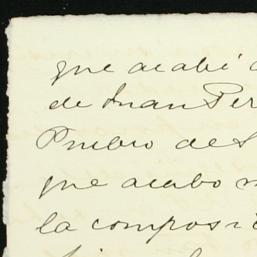 que acabé
de Juan Per
Pueblo de S
que acabo
la composi